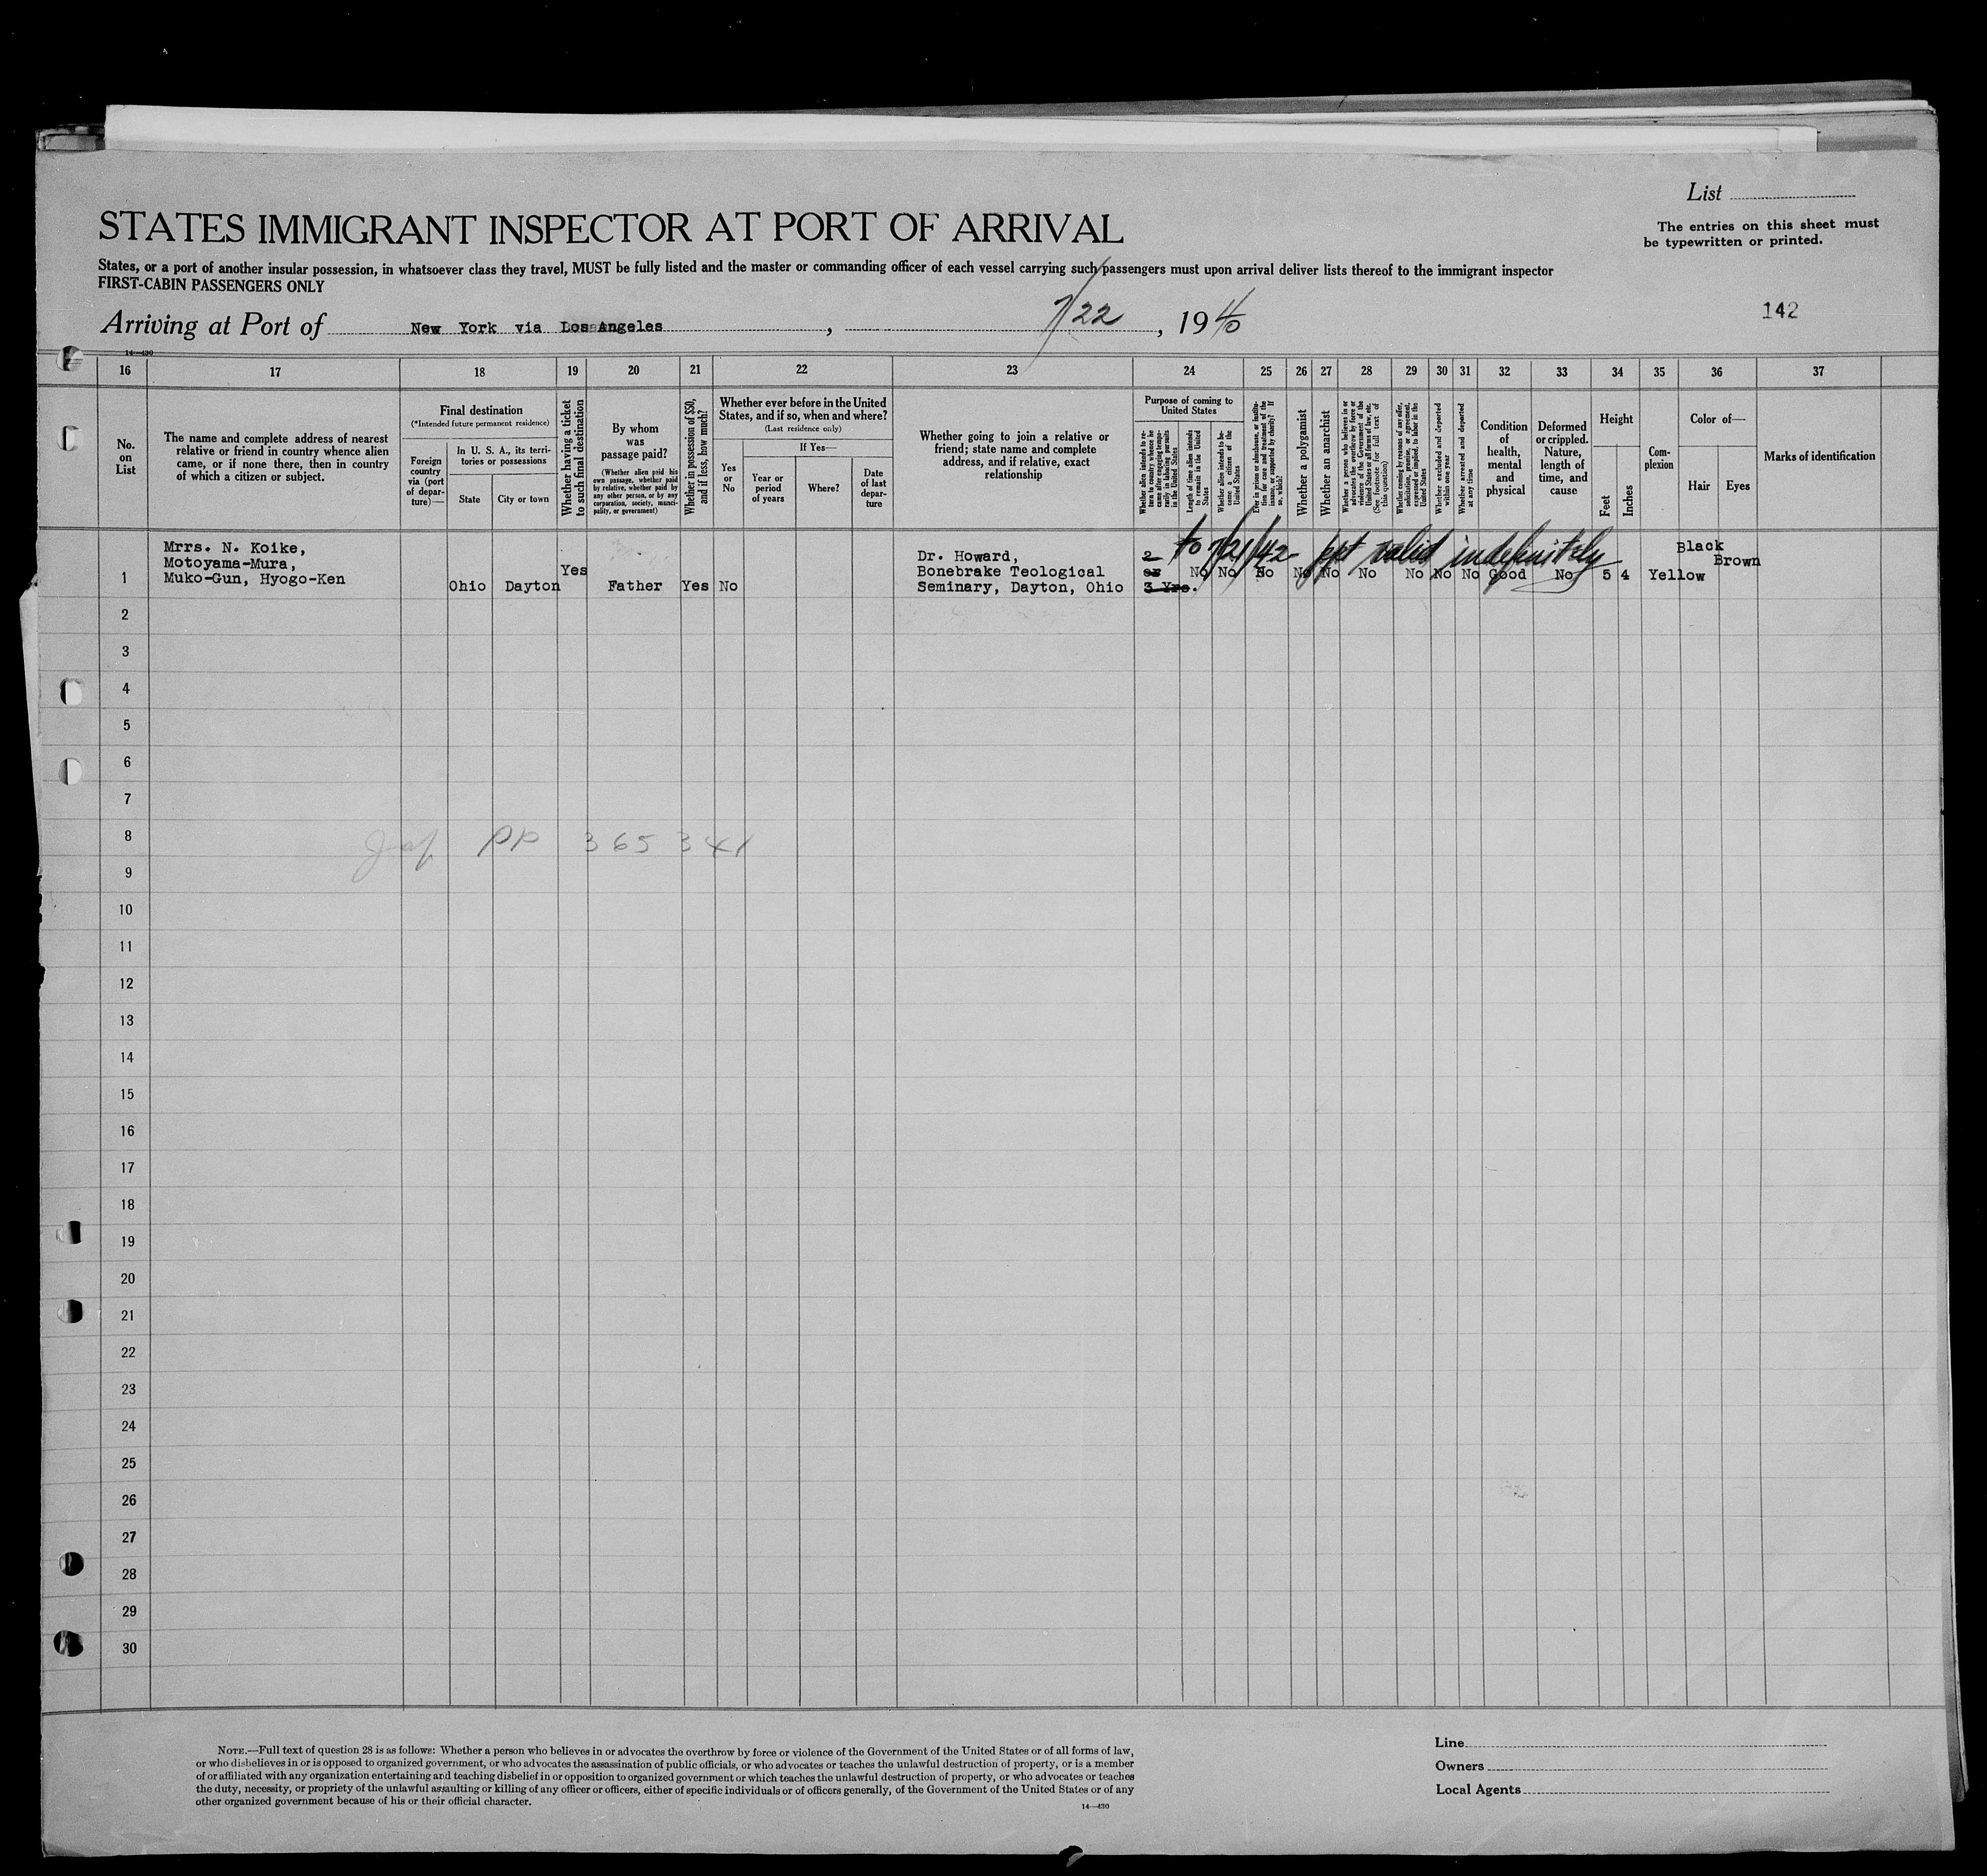 List
STATES IMMIGRANT INSPECTOR AT PORT OF ARRIVAL
The entries on this sheet must
be typewritten or printed.
States, or a port of another insular possession, in whatsoever class they travel, MUST be fully listed and the master or commanding officer of each vessel carrying such passengers must upon arrival deliver lists thereof to the immigrant inspector
FIRST-CABIN PASSENGERS ONLY
Arriving at Port of New York via Los Angeles, 7/22, 1940
142
14—430
16 17 18 19 20 21 22 23 24 25 26 27 28 29 30 31 32 33 34 35 36 37
No.
on
List
The name and complete address of nearest
relative or friend in country whence alien
came, or if none there, then in country
of which a citizen or subject.
Final destination
(*Intended future permanent residence)
Foreign
country
via (port
of depar-
ture)—
In U. S. A., its terri-
tories or possessions
State
City or town
Whether having a ticket
to such final destination
By whom
was
passage paid?
(Whether alien paid his
own passage, whether paid
by relative, whether paid by
any other person, or by any
corporation, society, munici-
pality, or government)
Whether in possession of $50,
and if less, how much?
Whether ever before in the United
States, and if so, when and where?
(Last residence only)
Yes
or
No
If Yes—
Year or
period
of years
Where?
Date
of last
depar-
ture
Whether going to join a relative or
friend; state name and complete
address, and if relative, exact
relationship
Purpose of coming to
United States
Whether alien intends to re-
turn to country whence he
came after engaging tempo-
rarily in laboring pursuits
in the United States
Length of time alien intends
to remain in the United
States
Whether alien intends to be-
come a citizen of the
United States
Ever in prison or almshouse, or institu-
tion for care and treatment of the
insane, or supported by charity? If
so, which?
Whether a polygamist
Whether an anarchist
Whether a person who believes in or
advocates the overthrow by force or
violence of the Government of the
United States or all forms of law, etc.
(See footnote for full text of
this question)
Whether coming by reason of any offer,
solicitation, promise, or agreement,
expressed or implied, to labor in the
United States
Whether excluded and deported
within one year
Whether arrested and deported
at any time
Condition
of
health,
mental
and
physical
Deformed
or crippled.
Nature,
length of
time, and
cause
Height
Feet
Inches
Com-
plexion
Color of—
Hair
Eyes
Marks of identification
to 7/21/42- ppt valid indefinitely
1
Mrrs. N. Koike,
Motoyama-Mura,
Muko-Gun, Hyogo-Ken
Ohio Dayton Yes Father Yes No
Dr. Howard,
Bonebrake Teological
Seminary, Dayton, Ohio
2
or
3 Yrs.
No No No No No No No No No Good No 5 4 Yellow Black Brown
2
3
4
5
6
7
8
Jap PP 365341
9
10
11
12
13
14
15
16
17
18
19
20
21
22
23
24
25
26
27
28
29
30
NOTE.—Full text of question 28 is as follows: Whether a person who believes in or advocates the overthrow by force or violence of the Government of the United States or of all forms of law,
or who disbelieves in or is opposed to organized government, or who advocates the assassination of public officials, or who advocates or teaches the unlawful destruction of property, or is a member
of or affiliated with any organization entertaining and teaching disbelief in or opposition to organized government or which teaches the unlawful destruction of property, or who advocates or teaches
the duty, necessity, or propriety of the unlawful assaulting or killing of any officer or officers, either of specific individuals or of officers generally, of the Government of the United States or of any
other organized government because of his or their official character.
14—430
Line
Owners
Local Agents